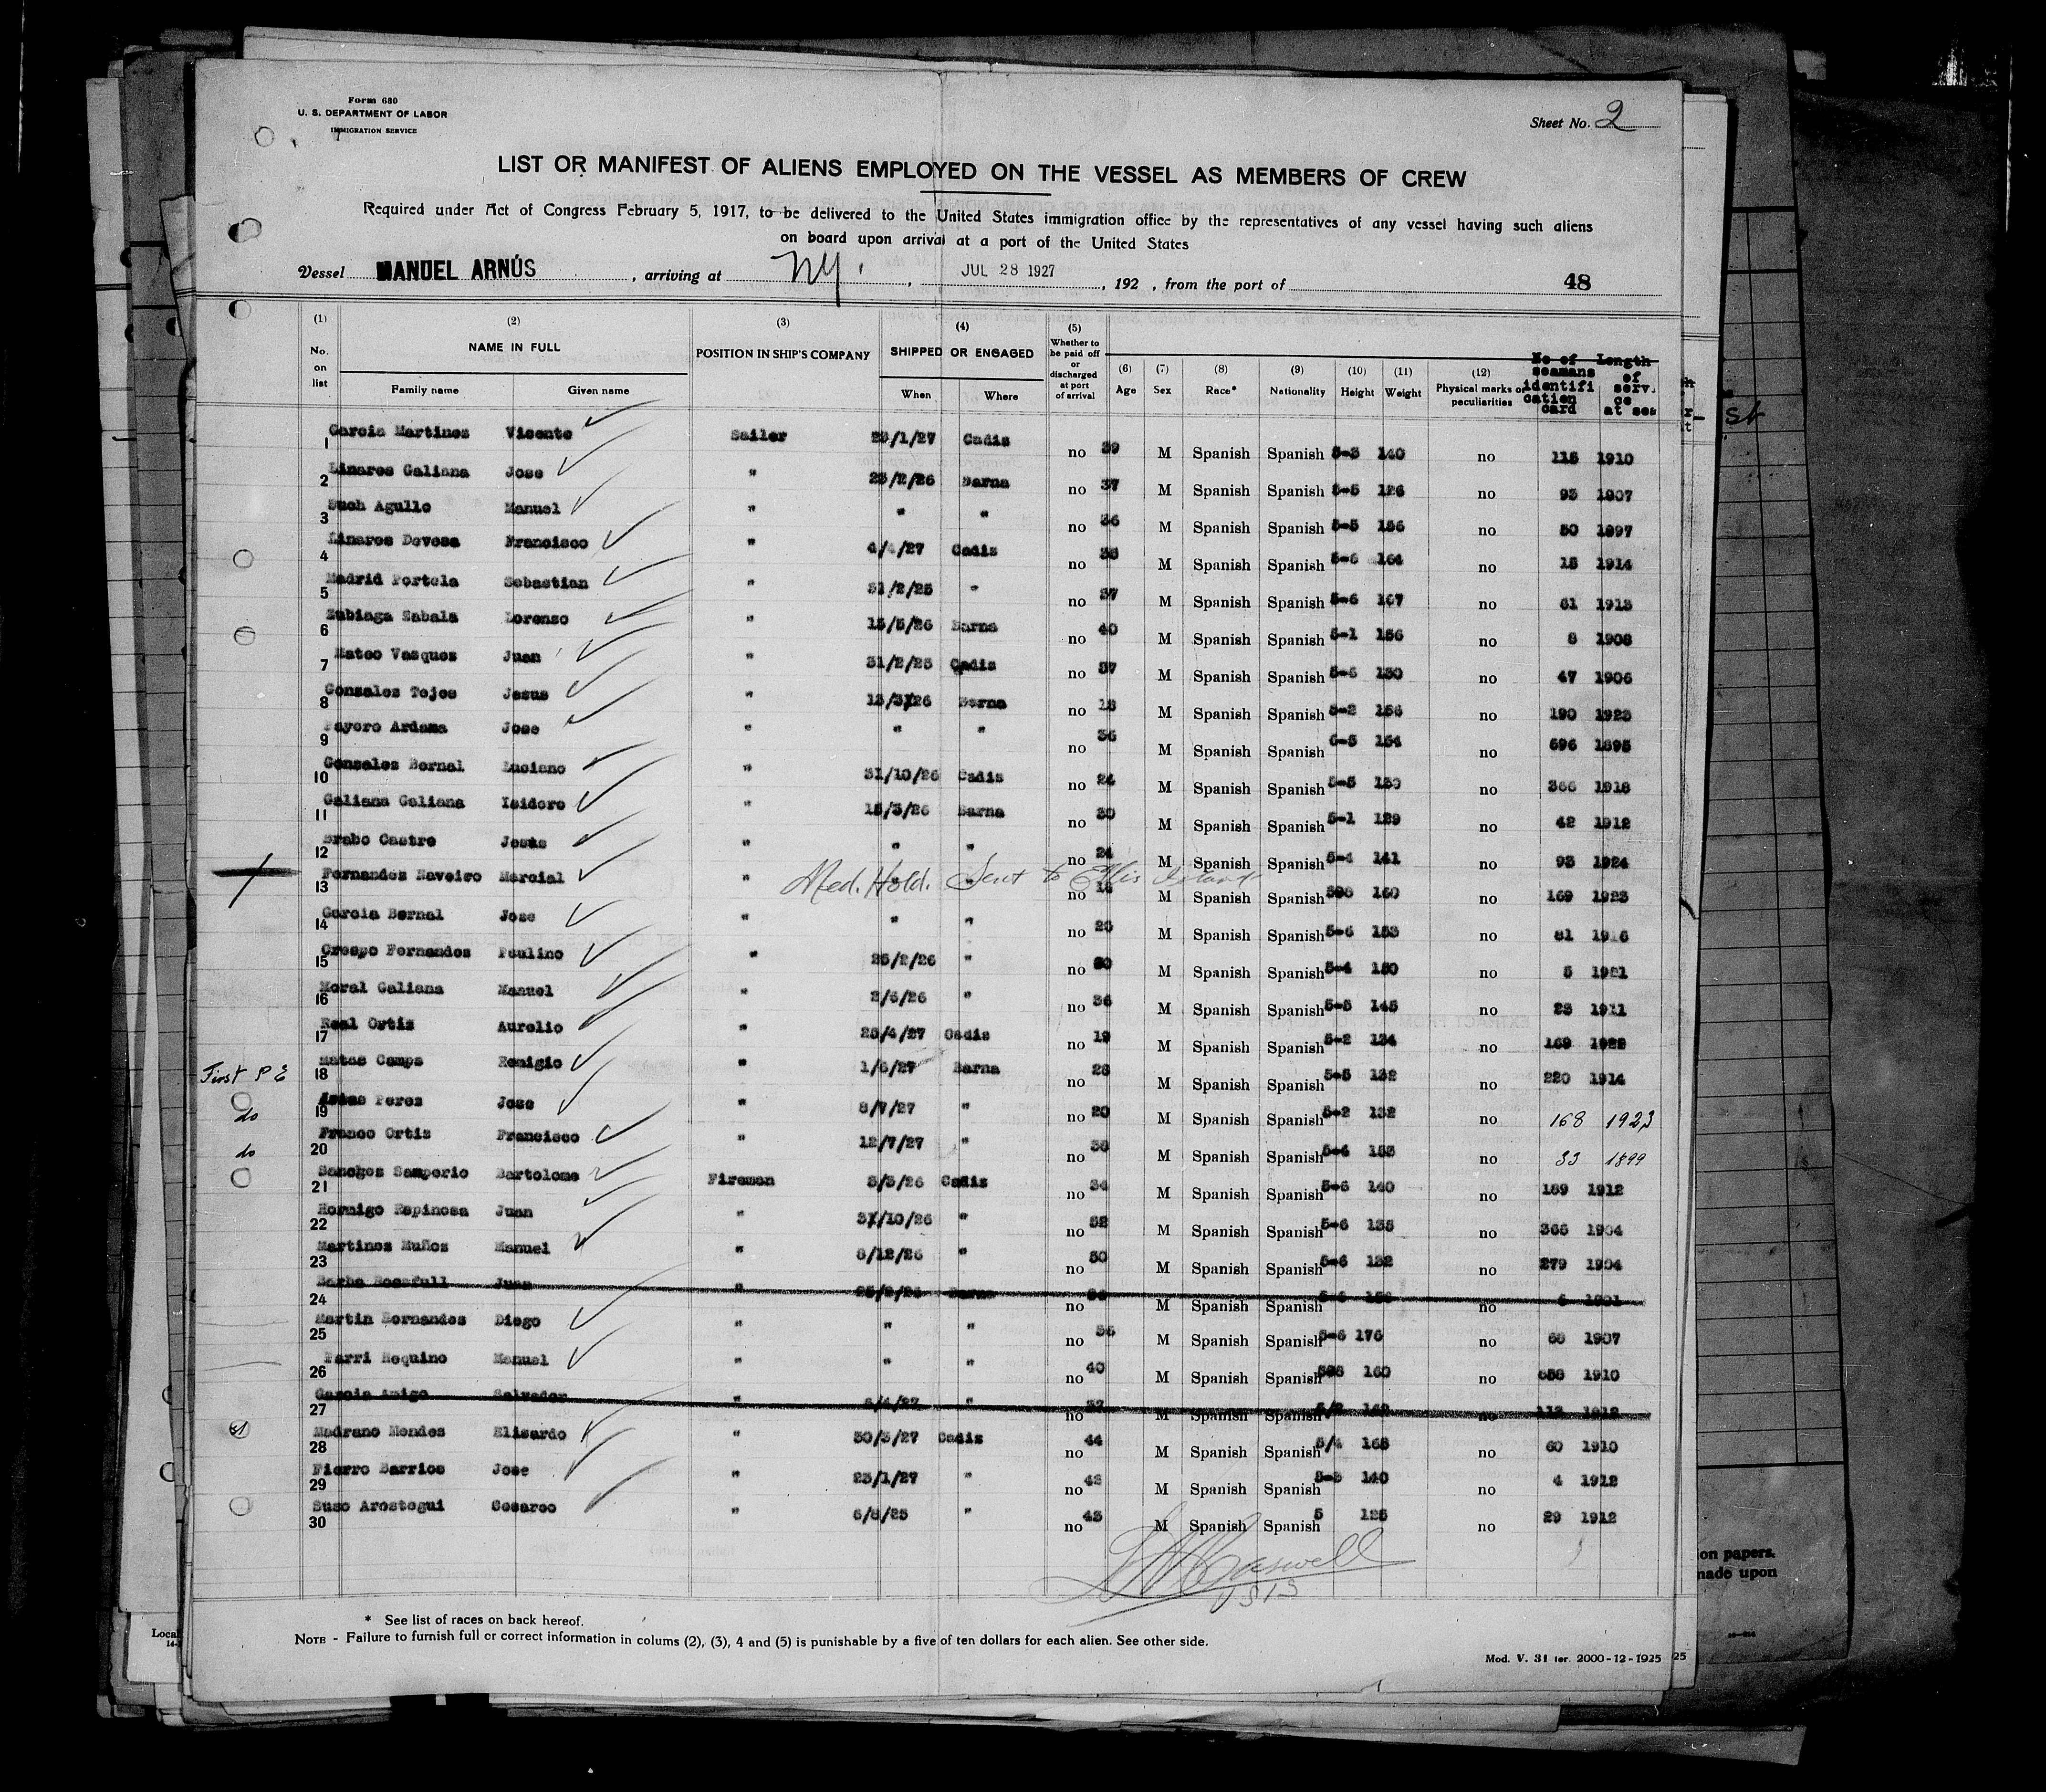 Form 680
U. S. DEPARTMENT OF LABOR
IMMIGRATION SERVICE
Sheet No. 2
LIST OR MANIFEST OF ALIENS EMPLOYED ON THE VESSEL AS MEMBERS OF CREW
Required under Act of Congress February 5, 1917, to be delivered to the United States immigration office by the representatives of any vessel having such aliens
on board upon arrival at a port of the United States
Vessel MANUEL ARNÚS, arriving at NY., JUL 28 1927, 192 , from the port of 48
(1) No. on list (2) NAME IN FULL Family name Given name (3) POSITION IN SHIP'S COMPANY (4) SHIPPED OR ENGAGED When Where (5) Whether to be paid off or discharged at port of arrival (6) Age (7) Sex (8) Race* (9) Nationality (10) Height (11) Weight (12) Physical marks or peculiarities No of seamans identifi cation card Length of serv. ce at sea
1 Garcia Martinez Vicente Sailer 23/1/27 Cadiz no 39 M Spanish Spanish 5-3 140 no 115 1910
2 Linares Galiana Jose " 23/2/26 Barna no 37 M Spanish Spanish 5-5 126 no 93 1907
3 Such Agullo Manuel " " " no 36 M Spanish Spanish 5-5 156 no 50 1897
4 Linares Devesa Francisco " 4/4/27 Cadiz no 38 M Spanish Spanish 5-6 164 no 15 1914
5 Madrid Portela Sebastian " 31/2/25 " no 37 M Spanish Spanish 5-6 167 no 61 1913
6 Zubiaga Zabala Lorenzo " 15/5/26 Barna no 40 M Spanish Spanish 5-1 156 no 8 1908
7 Mateo Vasquez Juan " 31/2/25 Cadiz no 37 M Spanish Spanish 5-5 130 no 47 1906
8 Gonzalez Tojos Jesus " 13/3/26 Barna no 18 M Spanish Spanish 5-2 156 no 190 1923
9 Ardama Jose " " " no 36 M Spanish Spanish 154 no 696 1895
10 Gonzalez Bernal Luciano " 31/10/26 Cadiz no 24 M Spanish Spanish 5-5 139 no 366 1918
11 Galiana Galiana Isidoro " 15/3/26 Barna no 30 M Spanish Spanish 5-1 129 no 42 1912
12 Brabo Castro Jesus " " " no 24 M Spanish Spanish 5-4 141 no 93 1924
13 Fernandez Naveiro Marcial " " " Med. Hold. Sent to Ellis Island no 18 M Spanish Spanish 160 no 169 1923
14 Garcia Bernal Jose " " " no 26 M Spanish Spanish 5-6 153 no 81 1916
15 Crespo Fernandez Paulino " 25/2/26 " no M Spanish Spanish 5-4 150 no 5 1921
16 Moral Galiana Manuel " 2/5/26 " no 36 M Spanish Spanish 5-5 145 no 23 1911
17 Real Ortiz Aurelio " 25/4/27 Cadiz no 19 M Spanish Spanish 5-2 134 no 169 1922
First P E 18 Matas Camps Remigio " 1/6/27 Barna no 28 M Spanish Spanish 5-5 132 no 220 1914
do 19 Perez Jose " 8/7/27 " no 20 M Spanish Spanish 5-2 132 no 168 1923
do 20 Franco Ortiz Francisco " 12/7/27 " no 38 M Spanish Spanish 5-4 155 no 33 1899
21 Sanchez Samperio Bartolome Fireman 3/3/26 Cadiz no 34 M Spanish Spanish 5-6 140 no 189 1912
22 Hormigo Espinosa Juan " 31/10/26 " no 32 M Spanish Spanish 5-6 135 no 366 1904
23 Martinez Muñoz Manuel " 8/12/26 " no 30 M Spanish Spanish 5-6 132 no 279 1904
24 Barba Rosafull Juan " 25/2/26 Barna no M Spanish Spanish no 1921
25 Martin Hernandez Diego " " " no 36 M Spanish Spanish 5-6 176 no 68 1907
26 Parri Requino Manuel " " " no 40 M Spanish Spanish 160 no 1910
27 Garcia Amigo Salvador " /27 " no 37 M Spanish Spanish no 112 1912
28 Madrano Mendez Elisardo " 30/3/27 Cadiz no 44 M Spanish Spanish 5/4 165 no 60 1910
29 Fierro Barrios Jose " 23/1/27 " no 42 M Spanish Spanish 5-5 140 no 4 1912
30 Suso Arostegui Cesareo " 6/8/25 " no 43 M Spanish Spanish 5 125 no 29 1912
Caswell
* See list of races on back hereof.
NOTE - Failure to furnish full or correct information in colums (2), (3), 4 and (5) is punishable by a five of ten dollars for each alien. See other side.
Mod. V. 31 ter. 2000-12-1925
25
on papers.
made upon
Local
St